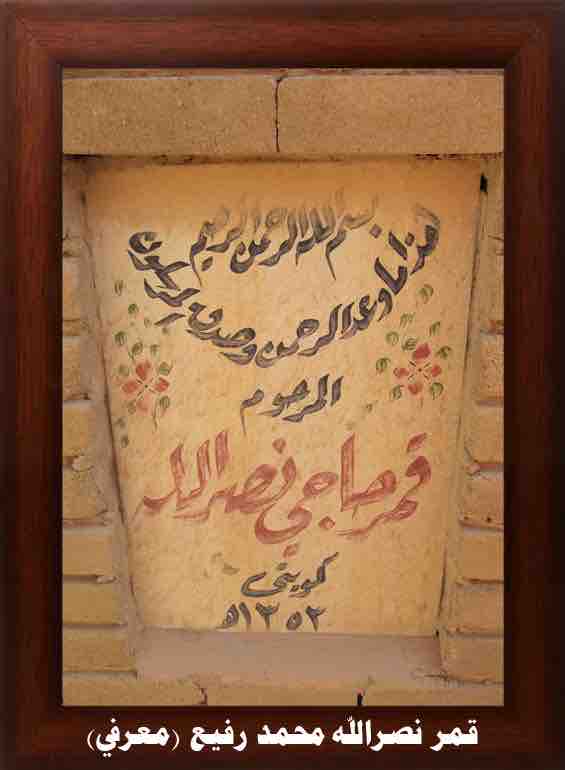 بسم الله الرحمن الرحيم
هذا ما وعد الرحمن وصدق المرسلون
المرحوم
قمر حاجي نصر الله
كويتى
١٣٥٢ه
قمر نصرالله محمد رفيع (معرفي)